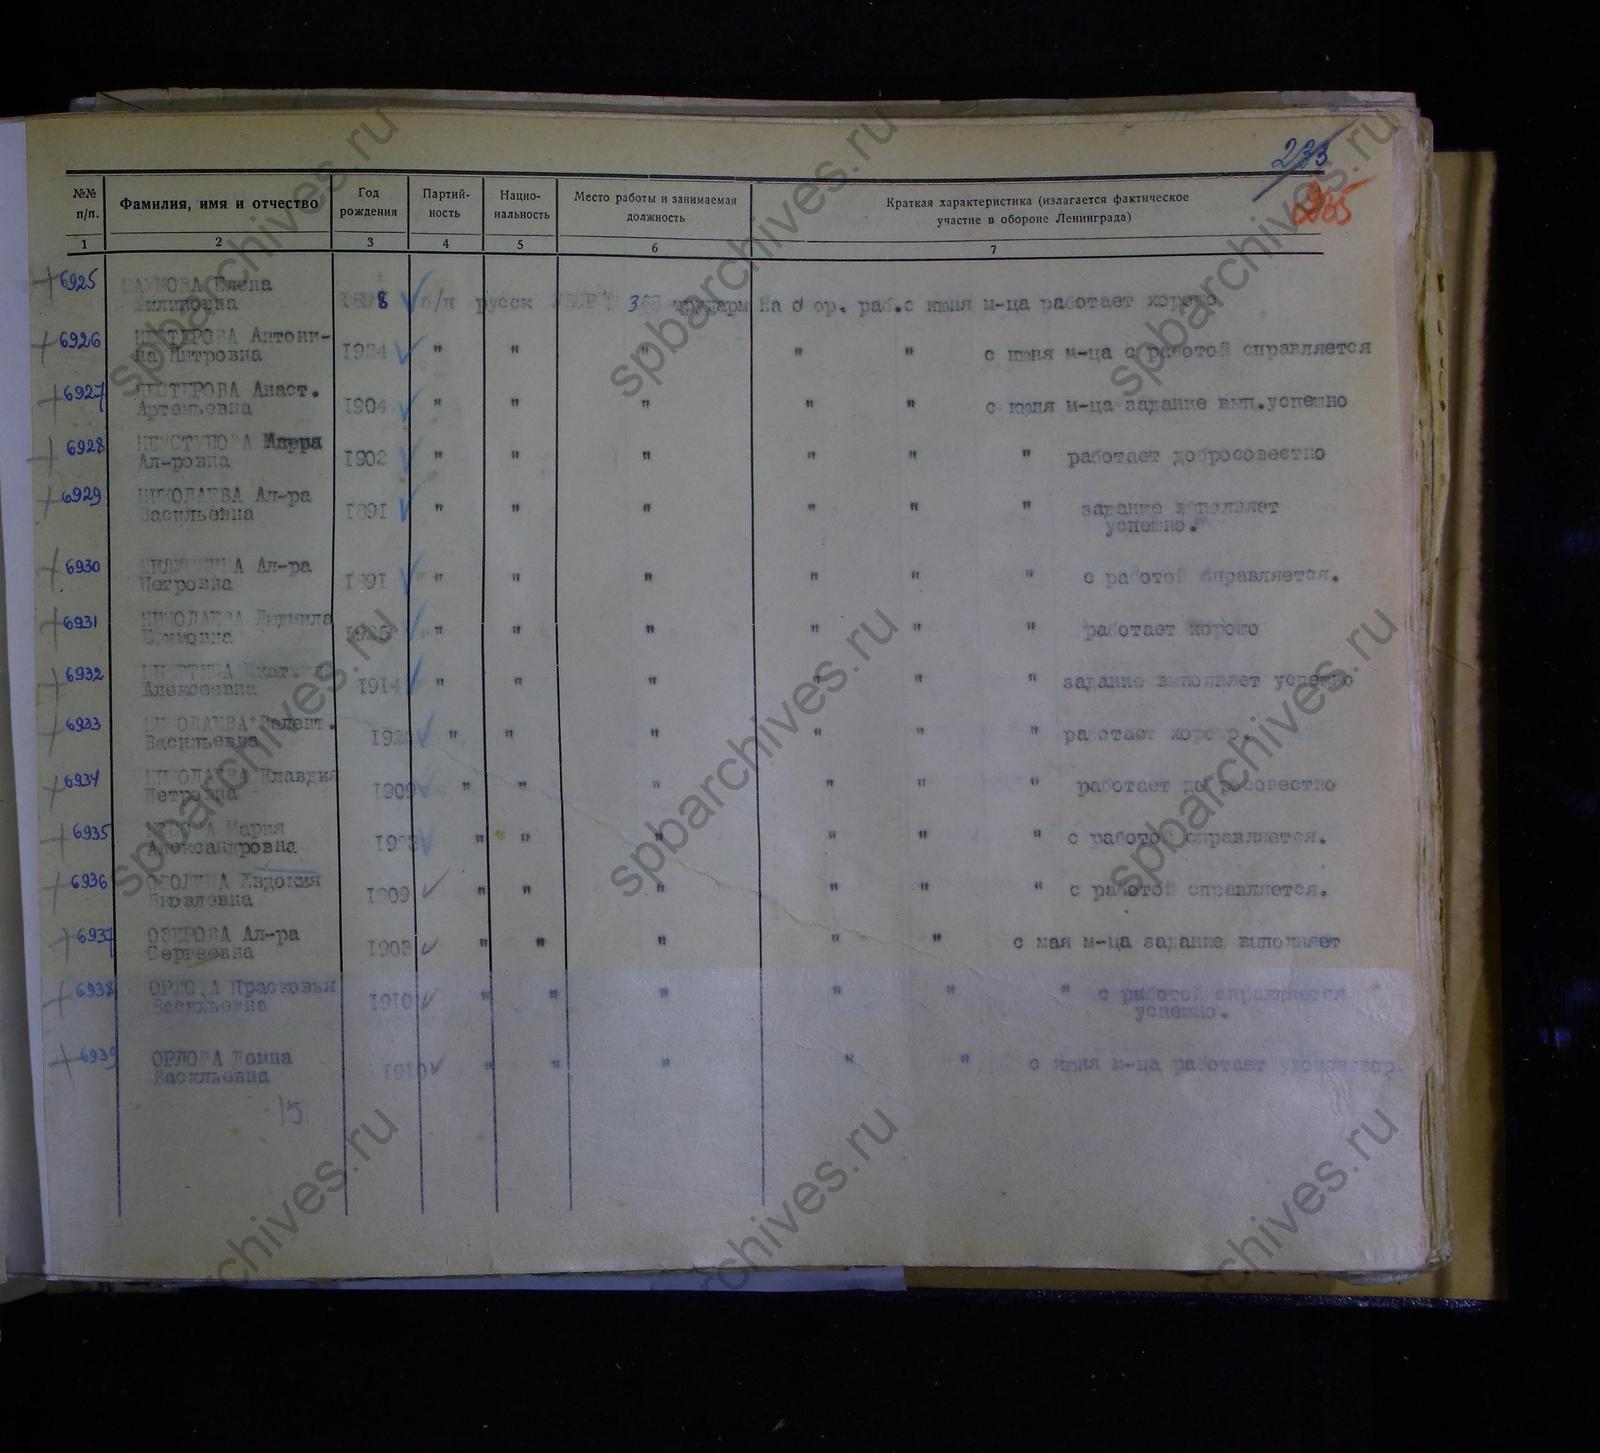 235
№№ п/п. Фамилия, имя и отчество Год рождения Партий-ность Нацио-нальность Место работы и занимаемая должность Краткая характеристика (излагается фактическое участие в обороне Ленинграда)
1 2 3 4 5 6 7
6925 НАУМОВА Елена
Филиповна 1898 б/п русск 368 На обор. раб.с июня м-ца работает хорошо
6926 НЕСТЕРОВА Антони-
на Питровна 1924 " " " " " с июня м-ца с работой справляется
6927 НЕСТЕРОВА Анаст.
Артемьевна 1904 " " " " " с июня м-ца задание вып.успешно
6928 Ал-ровна 1902 " " " " " " работает добросовестно
6929 НИКОЛАЕВА Ал-ра
Васильевна 1891 " " " " " " задание выполняет
успешно.
6930 Ал-ра
Петровна 1891 " " " " " " с работой справляется.
6931 НИКОЛАЕВА Людмила
1925 " " " " " " работает хорошо
6932 Екат.
Алексеевна 1914 " " " " " " задание выполняет успешно
6933 НИКОЛАЕВА Валент.
Васильевна " " " " " " работает хорошо.
6934 НИКОЛАЕВА Клавдия
Петровна 1909 " " " " " " работает добросовестно
6935 Мария
Александровна " " " " " " с работой справляется.
6936 Евдокия
Яковлевна 1909 " " " " " " с работой справляется.
6937 ОЗЕРОВА Ал-ра
Сергеевна 1903 " " " " " с мая м-ца задание выполняет
6938 ОРЛОВА Прасковья
Васильевна 1910 " " " " " " с работой справляется
успешно.
6939 ОРЛОВА Домна
Васильевна 1910 " " " " " с июня м-ца работает удовлетвор.
15
spbarchives.ru